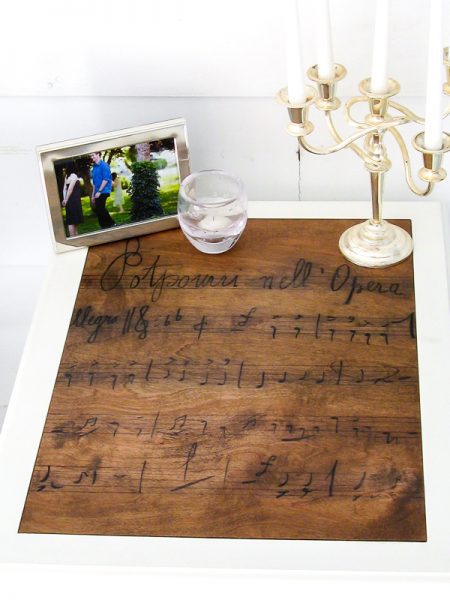 Potporari nell' Opera
Allegro